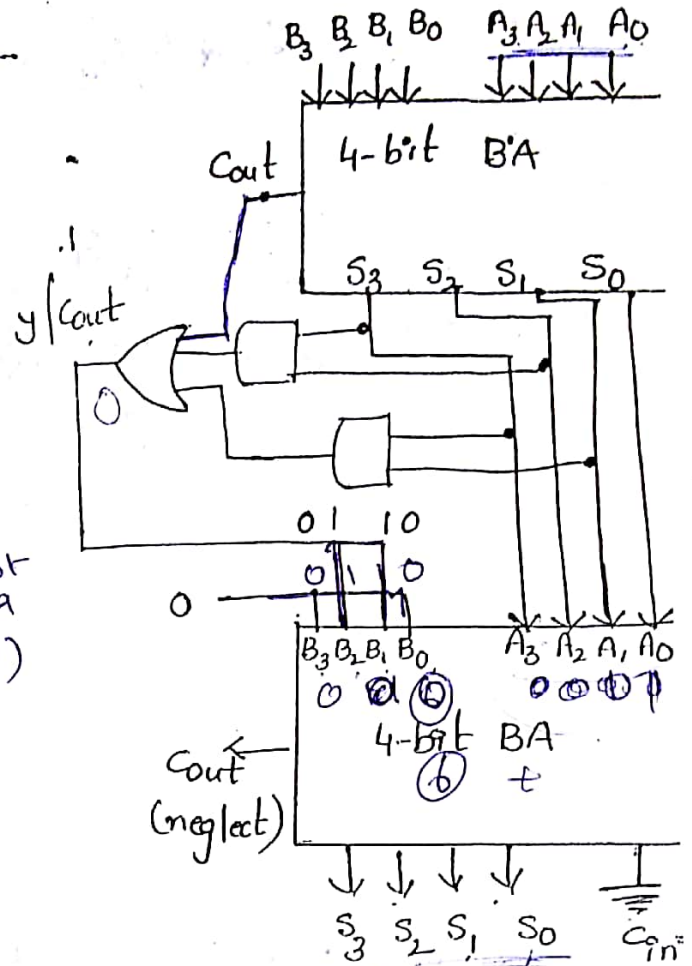 B3 B2 B1 B0 A3 A2 A1 A0
4-bit BA
Cout
S3 S2 S1 S0
y/Cout
0
0 1 1 0
0 1 1 0
0
B3 B2 B1 B0 A3 A2 A1 A0
4-bit BA
Cout
(neglect)
S3 S2 S1 S0 Cin=